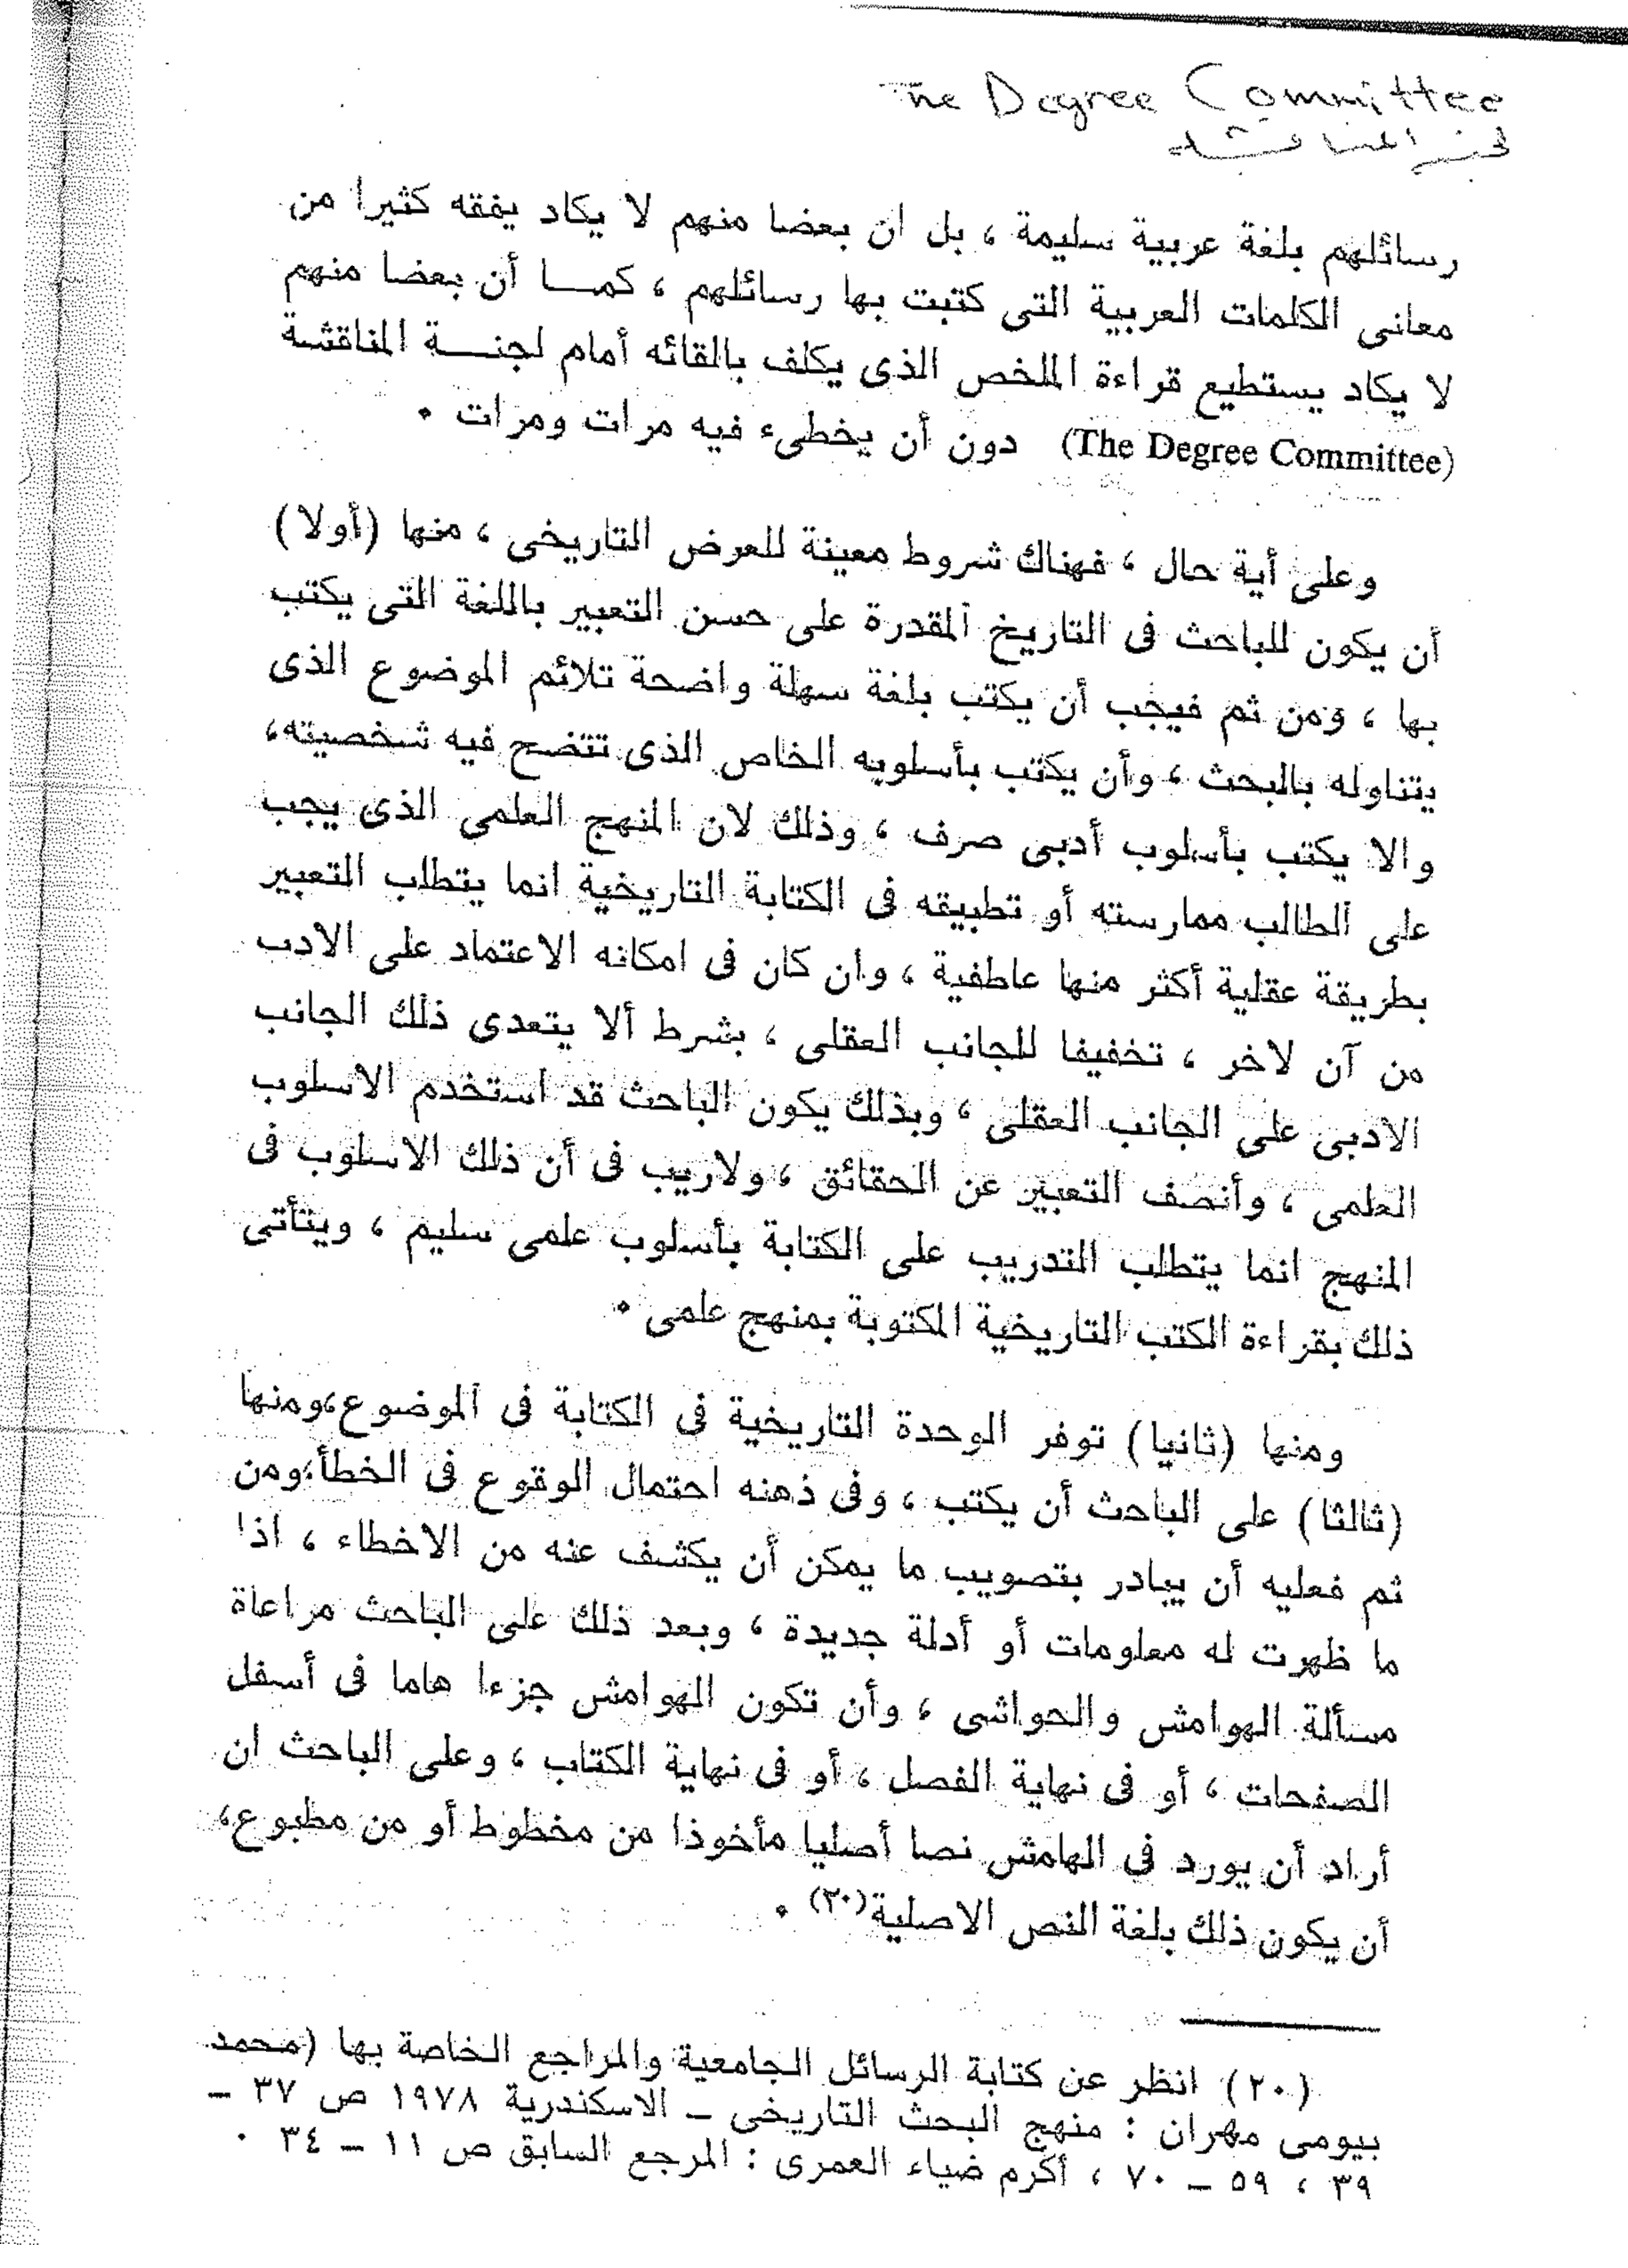 The Degree Committee
لجنة المناقشة
رسائلهم بلغة عربية سليمة ، بل ان بعضا منهم لا يكاد يفقه كثيرا من
معانى الكلمات العربية التى كتبت بها رسائلهم ، كمـــا أن بعضا منهم
لا يكاد يستطيع قراءة الملخص الذى يكلف بالقائه أمام لجنـــة المناقشة
(The Degree Committee) دون أن يخطىء فيه مرات ومرات ٠
وعلى أية حال ، فهناك شروط معينة للعرض التاريخى ، منها (أولا)
أن يكون للباحث فى التاريخ المقدرة على حسن التعبير باللغة التى يكتب
بها ، ومن ثم فيجب أن يكتب بلغة سهلة واضحة تلائم الموضوع الذى
يتناوله بالبحث ، وأن يكتب بأسلوبه الخاص الذى تتضح فيه شخصيته،
والا يكتب بأسلوب أدبى صرف ، وذلك لان المنهج العلمى الذى يجب
على الطالب ممارسته أو تطبيقه فى الكتابة التاريخية انما يتطلب التعبير
بطريقة عقلية أكثر منها عاطفية ، وان كان فى امكانه الاعتماد على الادب
من آن لاخر ، تخفيفا للجانب العقلى ، بشرط ألا يتعدى ذلك الجانب
الادبى على الجانب العقلى ، وبذلك يكون الباحث قد استخدم الاسلوب
العلمى ، وأنصف التعبير عن الحقائق ، ولاريب فى أن ذلك الاسلوب فى
المنهج انما يتطلب التدريب على الكتابة بأسلوب علمى سليم ، ويتأتى
ذلك بقراءة الكتب التاريخية المكتوبة بمنهج علمى ٠
ومنها (ثانيا) توفر الوحدة التاريخية فى الكتابة فى الموضوع،ومنها
(ثالثا) على الباحث أن يكتب ، وفى ذهنه احتمال الوقوع فى الخطأ،ومن
ثم فعليه أن يبادر بتصويب ما يمكن أن يكشف عنه من الاخطاء ، اذا
ما ظهرت له معلومات أو أدلة جديدة ، وبعد ذلك على الباحث مراعاة
مسألة الهوامش والحواشى ، وأن تكون الهوامش جزءا هاما فى أسفل
الصفحات ، أو فى نهاية الفصل ، أو فى نهاية الكتاب ، وعلى الباحث ان
أراد أن يورد فى الهامش نصا أصليا مأخوذا من مخطوط أو من مطبوع،
أن يكون ذلك بلغة النص الاصلية(٢٠) ٠
(٢٠) انظر عن كتابة الرسائل الجامعية والمراجع الخاصة بها (محمد
بيومى مهران : منهج البحث التاريخى ــ الاسكندرية ١٩٧٨ ص ٣٧ ــ
٣٩ ، ٥٩ ــ ٧٠ ، أكرم ضياء العمرى : المرجع السابق ص ١١ ــ ٣٤ ٠